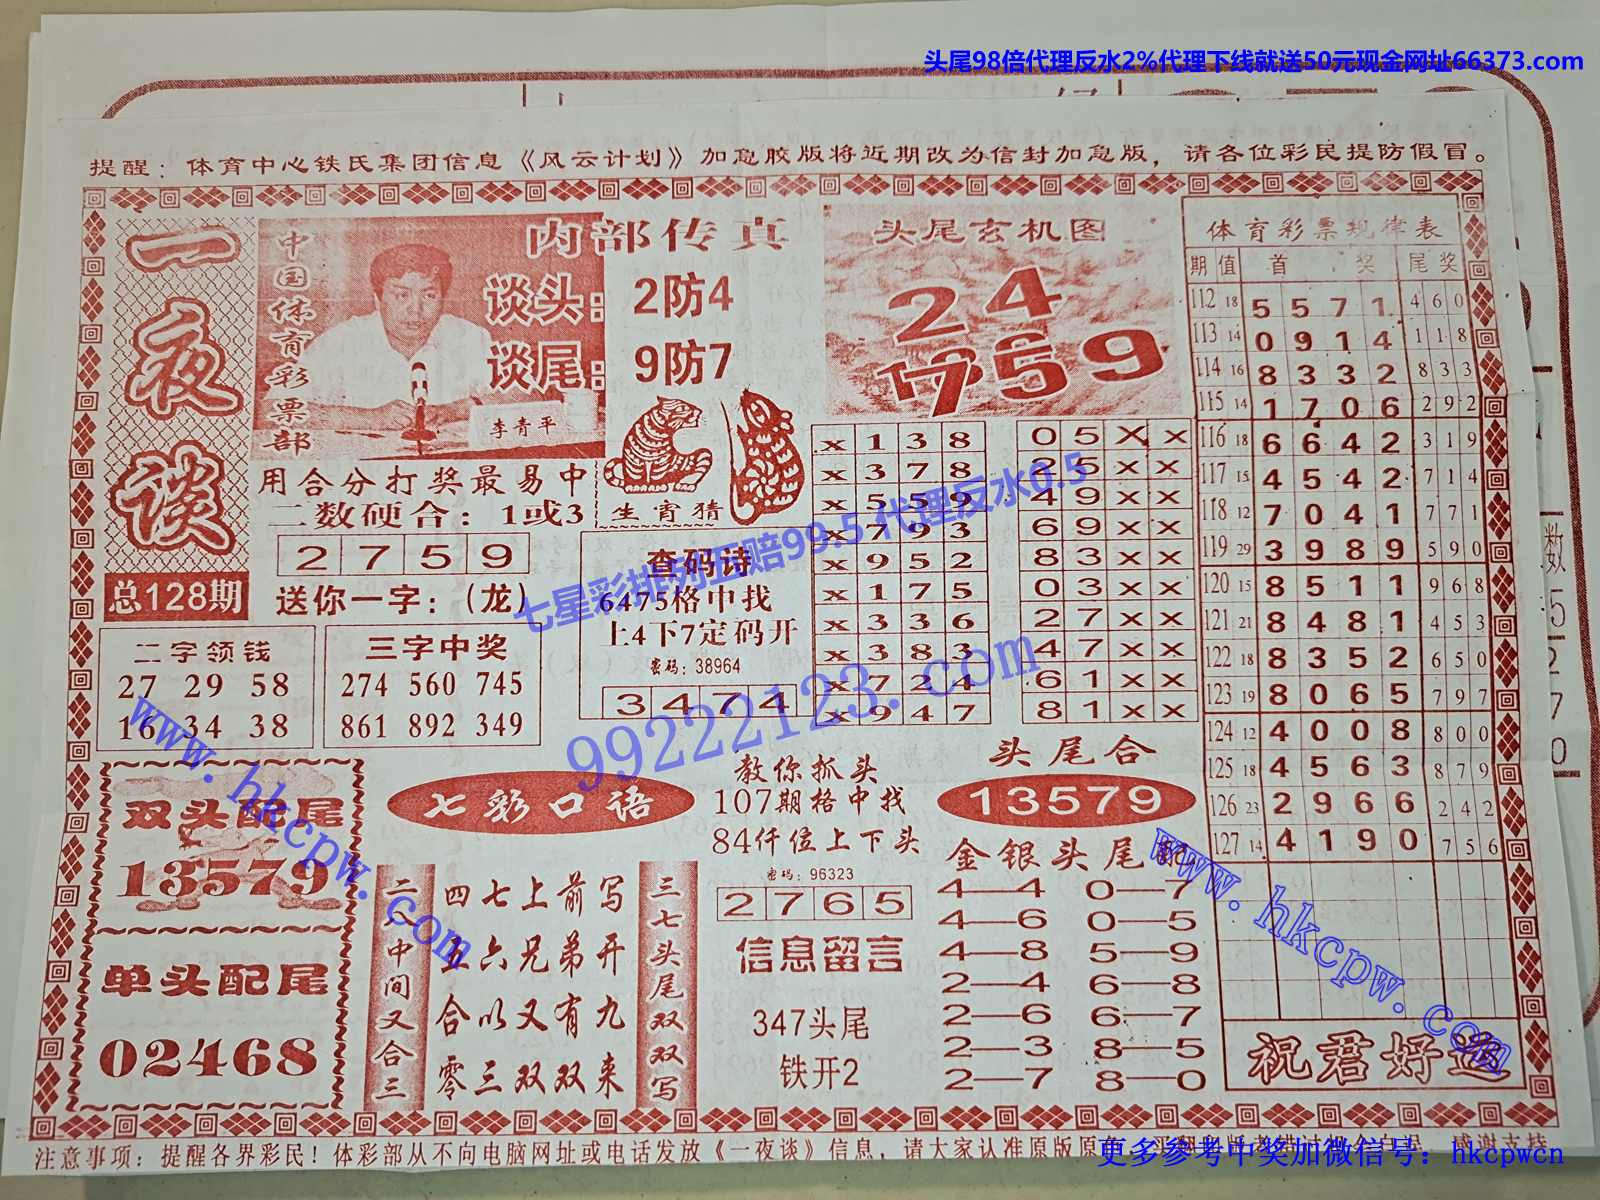 头尾98倍代理反水2%代理下线就送50元现金网址66373.com
提醒：体育中心铁氏集团信息《风云计划》加急胶版将近期改为信封加急版，请各位彩民提防假冒。
一夜谈
总128期
中国体育彩票部
李青平
内部传真
谈头：2防4
谈尾：9防7
用合分打奖最易中
二数硬合：1或3
2759
送你一字：（龙）
生肖猜
头尾玄机图
24
759
查码诗
6475格中找
上4下7定码开
密码：38964
3474
二字领钱
27 29 58
16 34 38
三字中奖
274 560 745
861 892 349
x 1 3 8
x 3 7 8
x 5 5 9
x 7 9 3
x 9 5 2
x 1 7 5
x 3 3 6
x 3 8 3
x 7 2 4
x 9 4 7
0 5 x x
2 5 x x
4 9 x x
6 9 x x
8 3 x x
0 3 x x
2 7 x x
4 7 x x
6 1 x x
8 1 x x
体育彩票规律表
期 值 首 奖 尾 奖
112 18 5 5 7 1 4 6 0
113 14 0 9 1 4 1 1 8
114 16 8 3 3 2 8 3 3
115 14 1 7 0 6 2 9 2
116 18 6 6 4 2 3 1 9
117 15 4 5 4 2 7 1 4
118 12 7 0 4 1 7 7 1
119 29 3 9 8 9 5 9 0
120 15 8 5 1 1 9 6 8
121 21 8 4 8 1 4 5 3
122 18 8 3 5 2 6 5 0
123 19 8 0 6 5 7 9 7
124 12 4 0 0 8 8 0 0
125 18 4 5 6 3 8 7 9
126 23 2 9 6 6 2 4 2
127 14 4 1 9 0 7 5 6
祝君好运
双头配尾
13579
单头配尾
02468
七彩口语
二八中间又合三
四七上前写
五六兄弟开
合以又有九
零三双双来
三七头尾双双写
教你抓头
107期格中找
84仟位上下头
密码：96323
2765
信息留言
347头尾
铁开2
头尾合
13579
金银头尾配
4—4 0—7
4—6 0—5
4—8 5—9
2—4 6—8
2—6 6—7
2—3 8—5
2—7 8—0
注意事项：提醒各界彩民！体彩部从不向电脑网址或电话发放《一夜谈》信息，请大家认准原版原
感谢支持
更多参考中奖加微信号：hkcpwcn
七星彩排列五赔99.5代理反水0.5
99222123.com
www.hkcpw.com
www.hkcpw.com